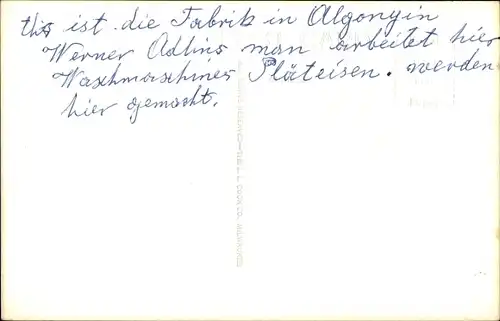 this ist die Fabrik in Algonqin
Werner Adlins man arbeitet hier
Waxhmaschines Pläteisen. werden
hier gemacht.
L. L. COOK CO. MILWAUKEE